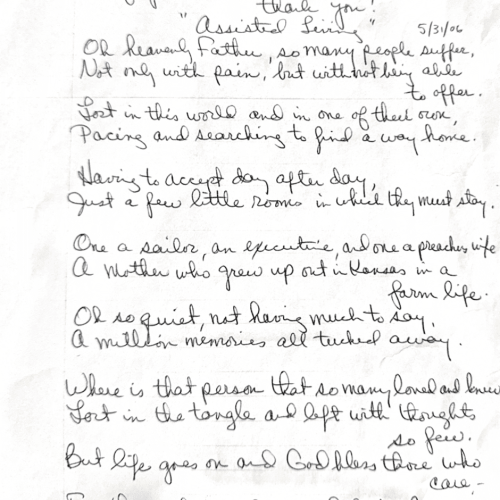 thank you!
"Assisted Living"
5/31/06
Oh heavenly Father, so many people suffer,
Not only with pain, but with not being able
to offer.
Lost in this world and in one of their own,
Pacing and searching to find a way home.
Having to accept day after day,
Just a few little rooms in which they must stay.
One a sailor, an executive, and one a preachers wife
A Mother who grew up out in Kansas in a
farm life.
Oh so quiet, not having much to say,
A million memories all tucked away.
Where is that person that so many loved and knew
Lost in the tangle and left with thoughts
so few.
But life goes on and God bless those who
care,-